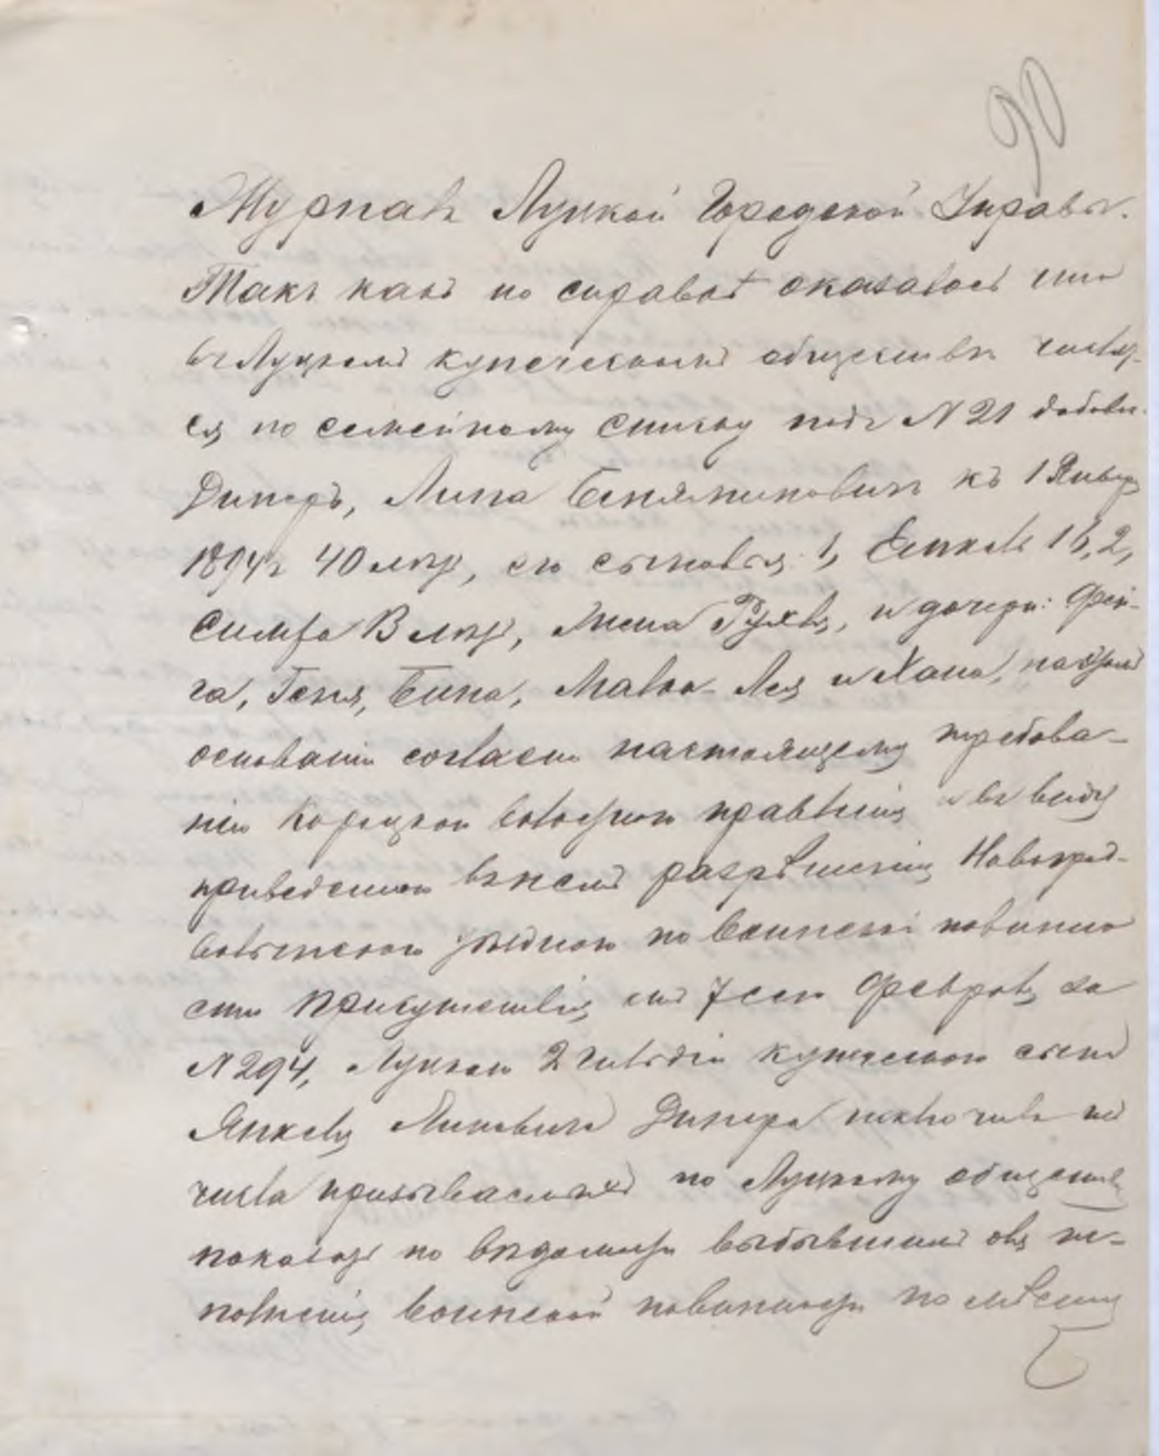 90
Журналъ Луцкой Городской Управы.
Такъ какъ по справкѣ оказалось что
въ Луцкомъ купеческомъ обществѣ числит-
ся по семейному списку подъ N 21
Динеръ, Липа Беняминовичъ къ 1 Января
1894 г 40 лѣтъ, его сыновья: 1, Янкель 16, 2,
Симха 13 лѣтъ, жена Рухля, и дочери: Фей-
га, Геня, Бина, Малка Лея и Хана, на
основаніи согласно настоящему требова-
нію Корецкой волостного правленія и въ виду
приведенного въ немъ разрѣшенія Новоград-
волынского уѣздного по воинской повинно
сти Присутствія, отъ 7 сего Февраля за
N 294, Луцкого 2 гильдіи купеческого сына
Янкеля Липовича Динера исключить изъ
числа призываемыхъ по Луцкому обществу
показавъ по вѣдомости выбывшимъ для ис-
полненія воинской повинности по мѣсту